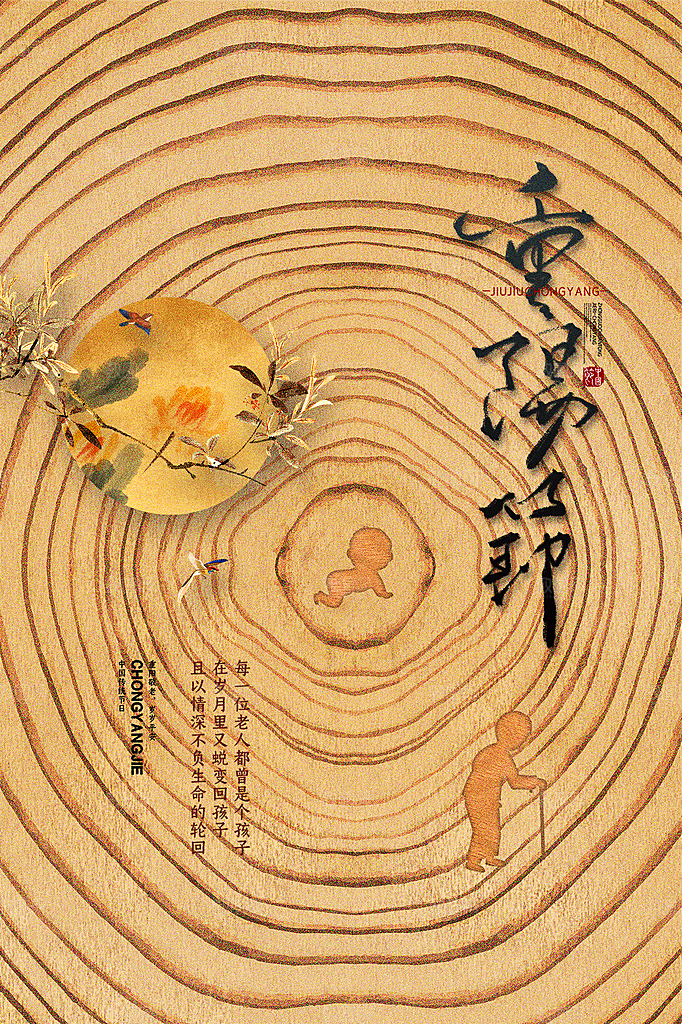 重陽節
—JIUJIUCHONGYANG—
中国
每一位老人都曾是个孩子
在岁月里又蜕变回孩子
且以情深不负生命的轮回
CHONGYANGJIE
中国传统节日